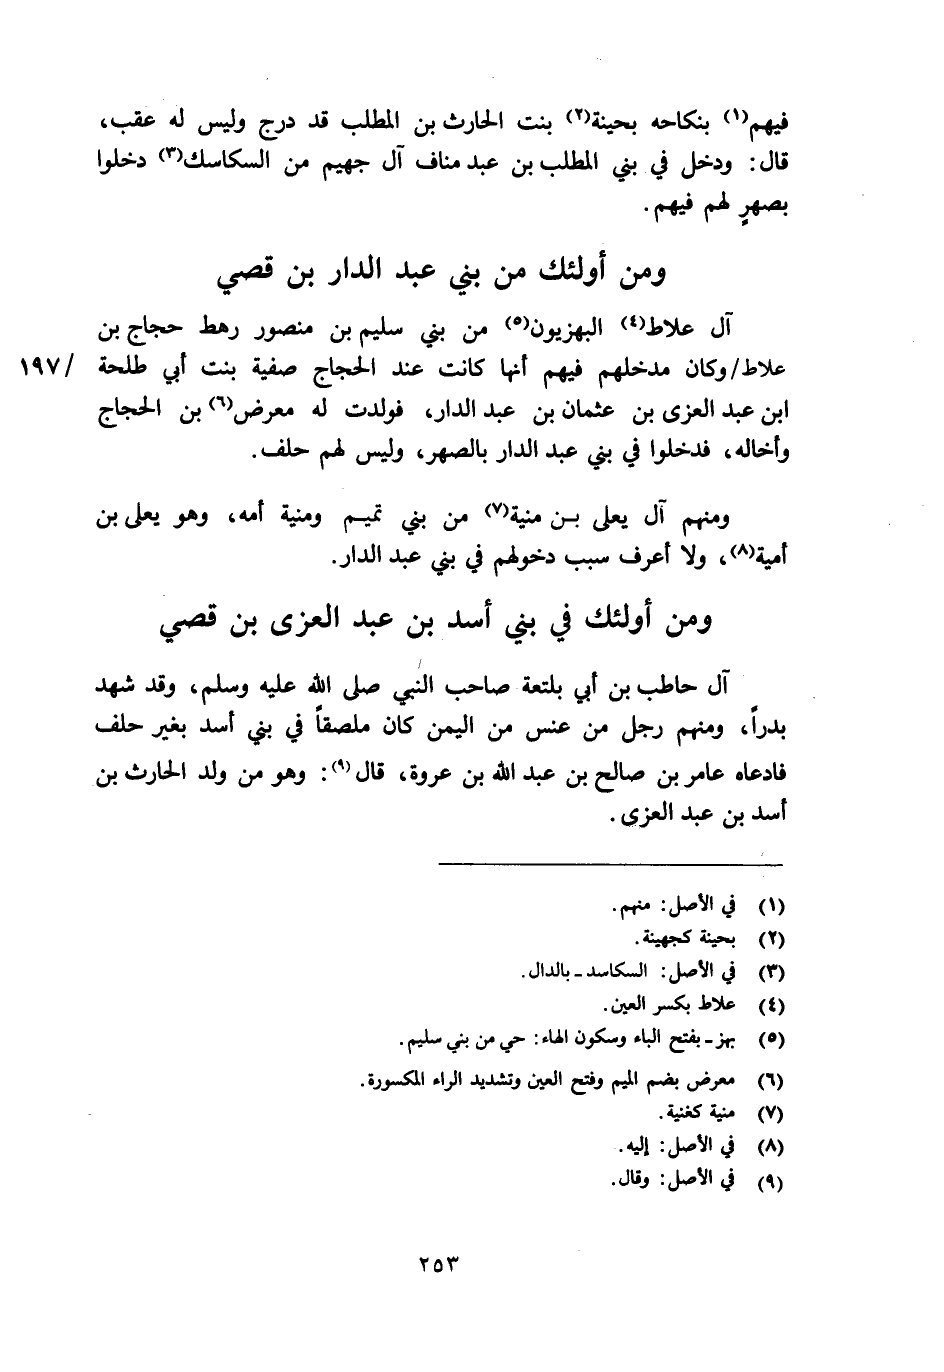 فيهم(١) بنكاحه بحينة(٢) بنت الحارث بن المطلب قد درج وليس له عقب،
قال: ودخل في بني المطلب بن عبد مناف آل جهيم من السكاسك(٣) دخلوا
بصهرٍ لهم فيهم.
ومن أولئك من بني عبد الدار بن قصي
آل علاط(٤) البهزيون(٥) من بني سليم بن منصور رهط حجاج بن
علاط/وكان مدخلهم فيهم أنها كانت عند الحجاج صفية بنت أبي طلحة /١٩٧
ابن عبد العزى بن عثمان بن عبد الدار، فولدت له معرض(٦) بن الحجاج
وأخاله، فدخلوا في بني عبد الدار بالصهر، وليس لهم حلف.
ومنهم آل يعلى بن منية(٧) من بني تميم ومنية أمه، وهو يعلى بن
أمية(٨)، ولا أعرف سبب دخولهم في بني عبد الدار.
ومن أولئك في بني أسد بن عبد العزى بن قصي
آل حاطب بن أبي بلتعة صاحب النبي صلى الله عليه وسلم، وقد شهد
بدراً، ومنهم رجل من عنس من اليمن كان ملصقاً في بني أسد بغير حلف
فادعاه عامر بن صالح بن عبد الله بن عروة، قال(٩): وهو من ولد الحارث بن
أسد بن عبد العزى.
(١) في الأصل: منهم.
(٢) بحينة كجهينة.
(٣) في الأصل: السكاسد ـ بالدال.
(٤) علاط بكسر العين.
(٥) بهز ـ بفتح الباء وسكون الهاء: حي من بني سليم.
(٦) معرض بضم الميم وفتح العين وتشديد الراء المكسورة.
(٧) منية كغنية.
(٨) في الأصل: إليه.
(٩) في الأصل: وقال.
٢٥٣